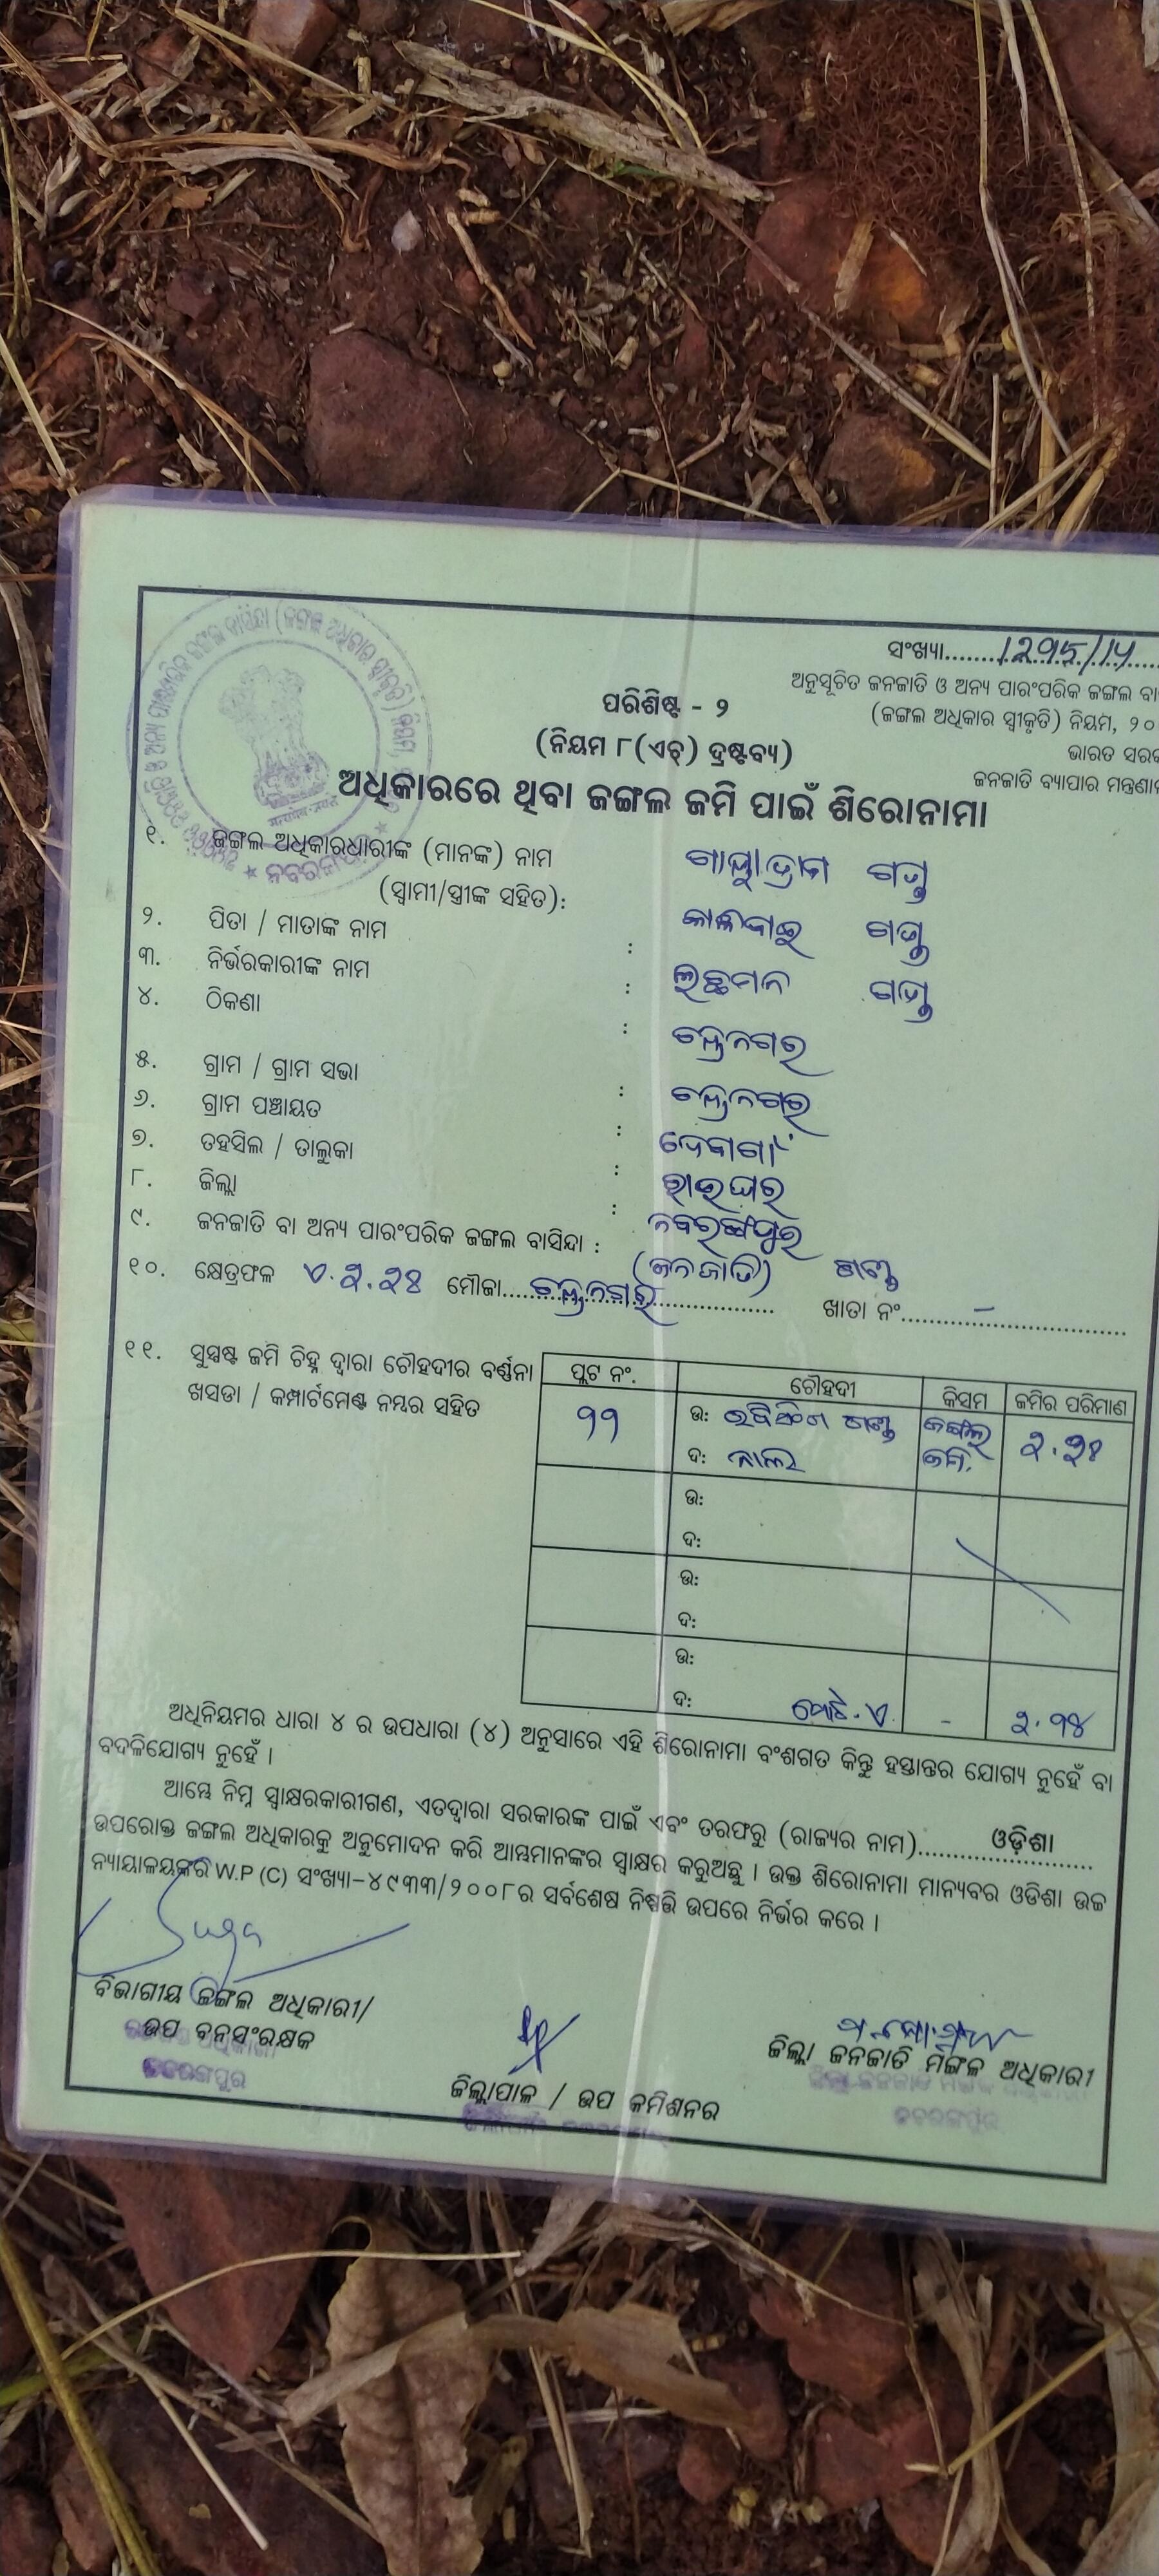 ସଂଖ୍ୟା.......1295/14......
ଅନୁସୂଚିତ ଜନଜାତି ଓ ଅନ୍ୟ ପାରଂପରିକ ଜଙ୍ଗଲ ବା
(ଜଙ୍ଗଲ ଅଧିକାର ସ୍ୱୀକୃତି) ନିୟମ, ୨୦
ଭାରତ ସରକ
ଜନଜାତି ବ୍ୟାପାର ମନ୍ତ୍ରଣା
ପରିଶିଷ୍ଟ - ୨
(ନିୟମ ୮(ଏଚ୍) ଦ୍ରଷ୍ଟବ୍ୟ)
ଅଧିକାରରେ ଥିବା ଜଙ୍ଗଲ ଜମି ପାଇଁ ଶିରୋନାମା
୧. ଜଙ୍ଗଲ ଅଧିକାରଧାରୀଙ୍କ (ମାନଙ୍କ) ନାମ
(ସ୍ୱାମୀ/ସ୍ତ୍ରୀଙ୍କ ସହିତ):
୨. ପିତା / ମାତାଙ୍କ ନାମ :
୩. ନିର୍ଭରକାରୀଙ୍କ ନାମ : ଲଛମନ
୪. ଠିକଣା :
୫. ଗ୍ରାମ / ଗ୍ରାମ ସଭା :
୬. ଗ୍ରାମ ପଞ୍ଚାୟତ : ଦେବଗାଁ
୭. ତହସିଲ / ତାଲୁକା : ରାଇଘର
୮. ଜିଲ୍ଲା : ନବରଙ୍ଗପୁର
୯. ଜନଜାତି ବା ଅନ୍ୟ ପାରଂପରିକ ଜଙ୍ଗଲ ବାସିନ୍ଦା : (ଜନଜାତି)
୧୦. କ୍ଷେତ୍ରଫଳ ଏ.୨.୨୪ ମୌଜା.................. ଖାତା ନଂ.........–.........
୧୧. ସୁସ୍ପଷ୍ଟ ଜମି ଚିହ୍ନ ଦ୍ୱାରା ଚୌହଦୀର ବର୍ଣ୍ଣନା
ଖସଡା / କମ୍ପାର୍ଟମେଣ୍ଟ ନମ୍ବର ସହିତ
ପ୍ଲଟ ନଂ. ଚୌହଦୀ କିସମ ଜମିର ପରିମାଣ
୨୨ ଉ: ଜଙ୍ଗଲ ୨.୨୪
ଦ: ନାଲା ଜମି.
ଉ:
ଦ:
ଉ:
ଦ:
ଉ:
ଦ: ମୋଟ.ଏ. –
ଅଧିନିୟମର ଧାରା ୪ ର ଉପଧାରା (୪) ଅନୁସାରେ ଏହି ଶିରୋନାମା ବଂଶଗତ କିନ୍ତୁ ହସ୍ତାନ୍ତର ଯୋଗ୍ୟ ନୁହେଁ ବା
ବଦଳିଯୋଗ୍ୟ ନୁହେଁ ।
ଆମ୍ଭେ ନିମ୍ନ ସ୍ୱାକ୍ଷରକାରୀଗଣ, ଏତଦ୍ୱାରା ସରକାରଙ୍କ ପାଇଁ ଏବଂ ତରଫରୁ (ରାଜ୍ୟର ନାମ).........ଓଡ଼ିଶା.........
ଉପରୋକ୍ତ ଜଙ୍ଗଲ ଅଧିକାରକୁ ଅନୁମୋଦନ କରି ଆମ୍ଭମାନଙ୍କର ସ୍ୱାକ୍ଷର କରୁଅଛୁ । ଉକ୍ତ ଶିରୋନାମା ମାନ୍ୟବର ଓଡିଶା ଉଚ୍ଚ
ନ୍ୟାୟାଳୟଙ୍କର W.P (C) ସଂଖ୍ୟା-୪୯୩୩/୨୦୦୮ର ସର୍ବଶେଷ ନିଷ୍ପତ୍ତି ଉପରେ ନିର୍ଭର କରେ ।
ବିଭାଗୀୟ ଜଙ୍ଗଲ ଅଧିକାରୀ/
ଉପ ବନସଂରକ୍ଷକ
ନବରଙ୍ଗପୁର
ଜିଲ୍ଲାପାଳ / ଉପ କମିଶନର
ଜିଲ୍ଲା ଜନଜାତି ମଙ୍ଗଳ ଅଧିକାରୀ
ନବରଙ୍ଗପୁର